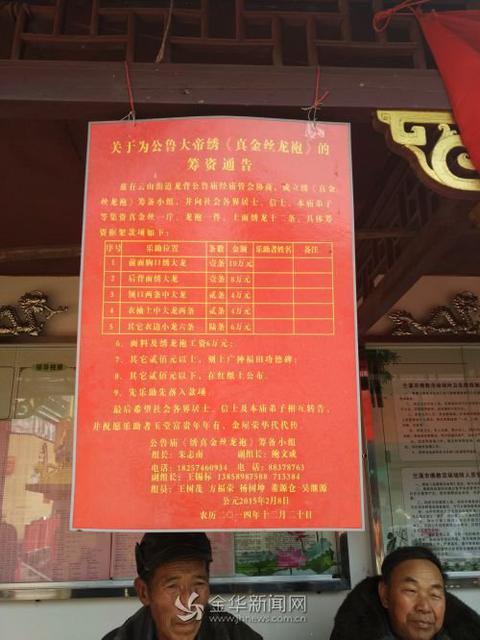 关于为公鲁大帝绣《真金丝龙袍》的
筹资通告
兹在云山街道龙背公鲁庙经庙管会协商，成立绣《真金
丝龙袍》筹备小组，并向社会各界居士、信士、本庙弟子
等集资真金丝一斤，龙袍一件，上面绣龙十二条，具体筹
资框架款项如下：
序号 乐助位置 条数 金额 乐助者姓名 备注
1 前面胸口绣大龙 壹条 10万元
2 后背面绣大龙 壹条 8万元
3 领口两条中大龙 贰条 4万元
4 衣袖上中大龙两条 贰条 4万元
5 其它衣边小龙六条 陆条 6万元
6、面料及绣龙袍工资6万元；
7、其它贰佰元以上，刻上广种福田功德碑；
8、其它贰佰元以下，在红纸上公布。
9、先乐助先落入款项。
最后希望社会各界居士、信士及本庙弟子相互转告，
并祝愿乐助者玉堂富贵年年有、金屋荣华代代传。
公鲁庙《绣真金丝龙袍》筹备小组
组长：朱志南 副组长：鲍文成
电话：18257460934 电话：88378763
副组长：王锡标 13858987588 713384
组员：王树茂 方福荣 杨树坤 董源仓 吴继源
公元2015年2月8日
农历二〇一四年十二月二十日
金华新闻网
www.jhnews.com.cn